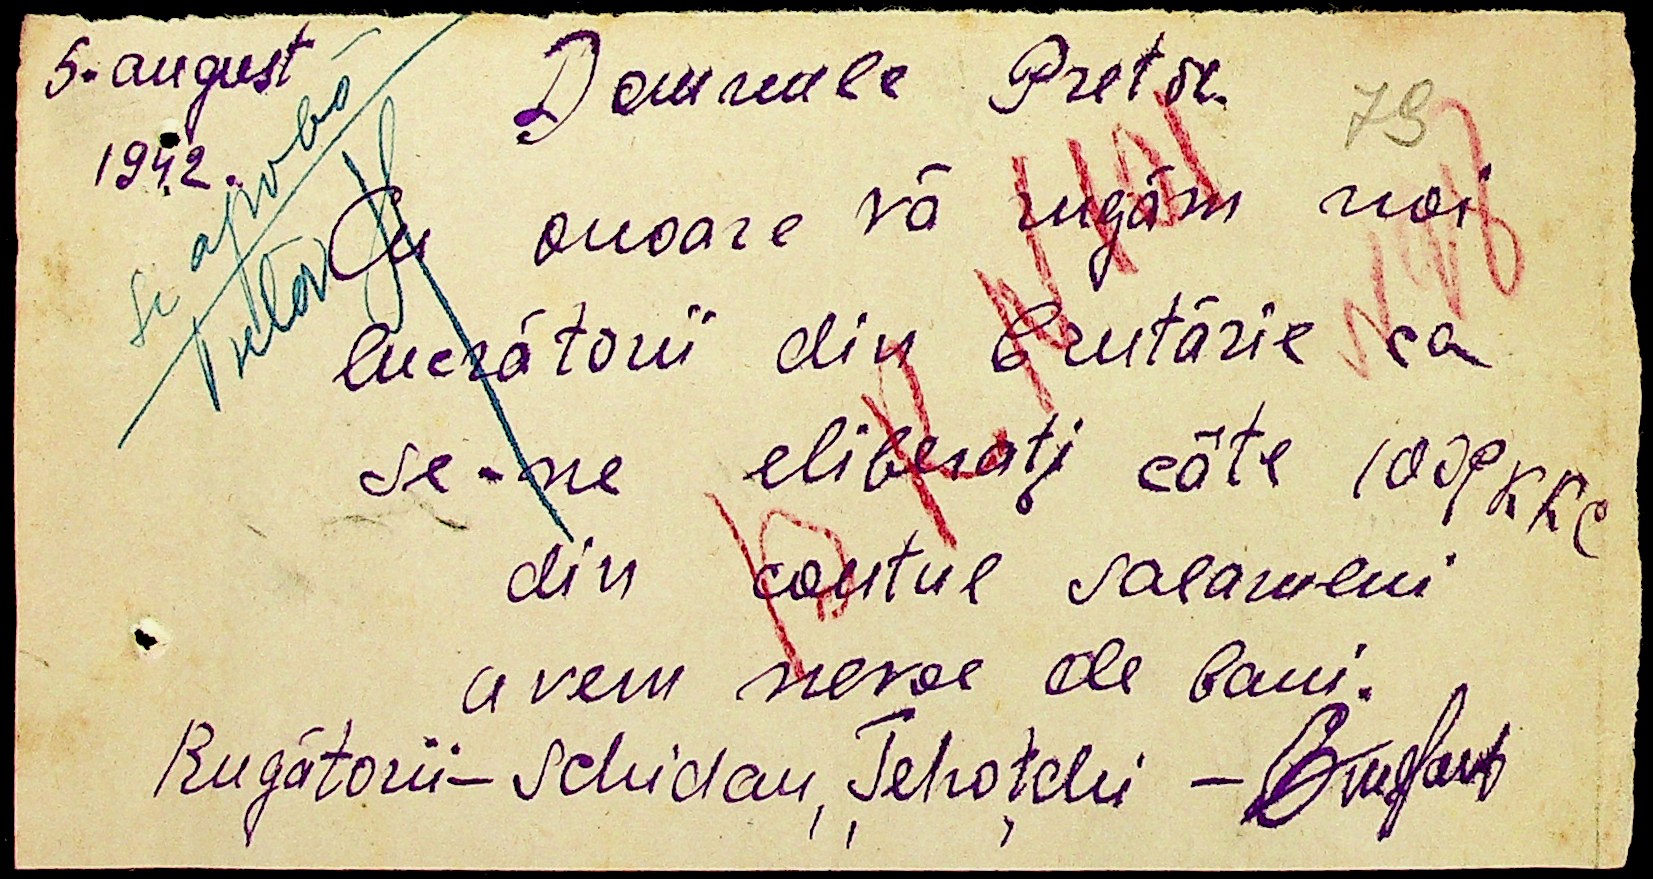 5. august
1942.
79
Domnule Pretor.
Se aprobă
Pretor
Cu onoare vă rugăm noi
lucrătorii din brutărie ca
se-ne eliberați câte
din contul salarului
avem nevoe de bani.
Rugătorii- Schidan,